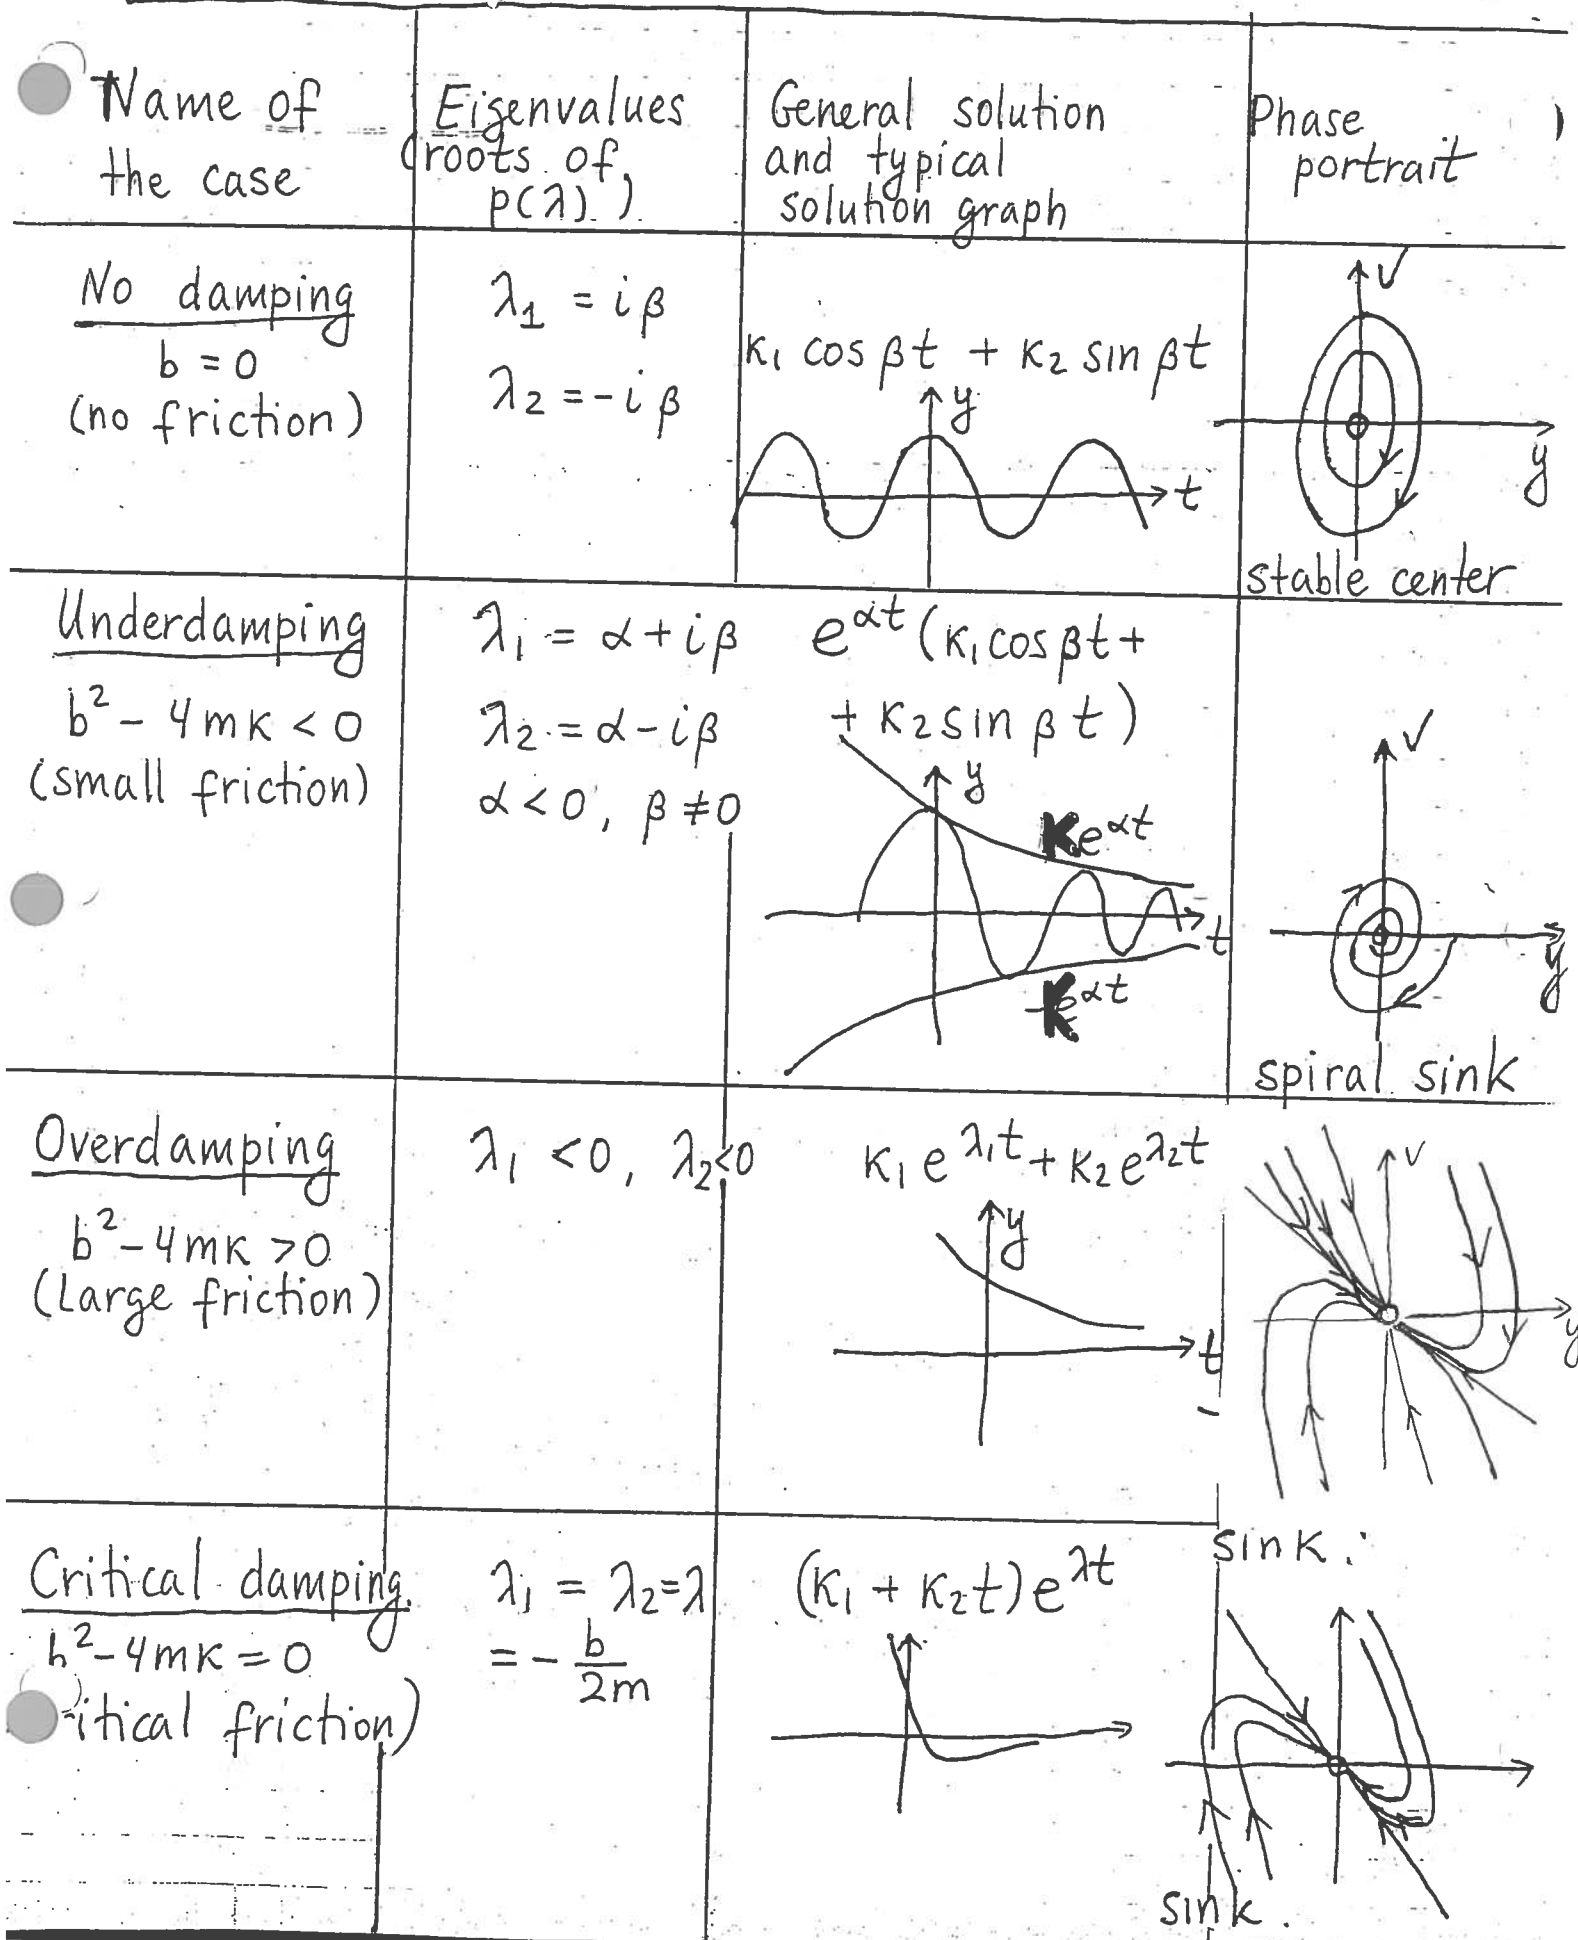 Name of
the case
Eigenvalues
(roots of
p(λ).)
General solution
and typical
solution graph
Phase
portrait
No damping
b = 0
(no friction)
λ₁ = iβ
λ₂ = -iβ
K₁ cos βt + K₂ sin βt
y
t
v
y
stable center
Underdamping
b² - 4mK < 0
(small friction)
λ₁ = α + iβ
λ₂ = α - iβ
α < 0, β ≠ 0
e^αt (K₁ cos βt +
+ K₂ sin βt)
y
Ke^αt
t
-Ke^αt
v
y
spiral sink
Overdamping
b² - 4mK > 0
(Large friction)
λ₁ < 0, λ₂ < 0
K₁ e^λ₁t + K₂ e^λ₂t
y
t
v
y
sink.
Critical damping
b² - 4mK = 0
itical friction)
λ₁ = λ₂ = λ
= - b/2m
(K₁ + K₂t) e^λt
sink.